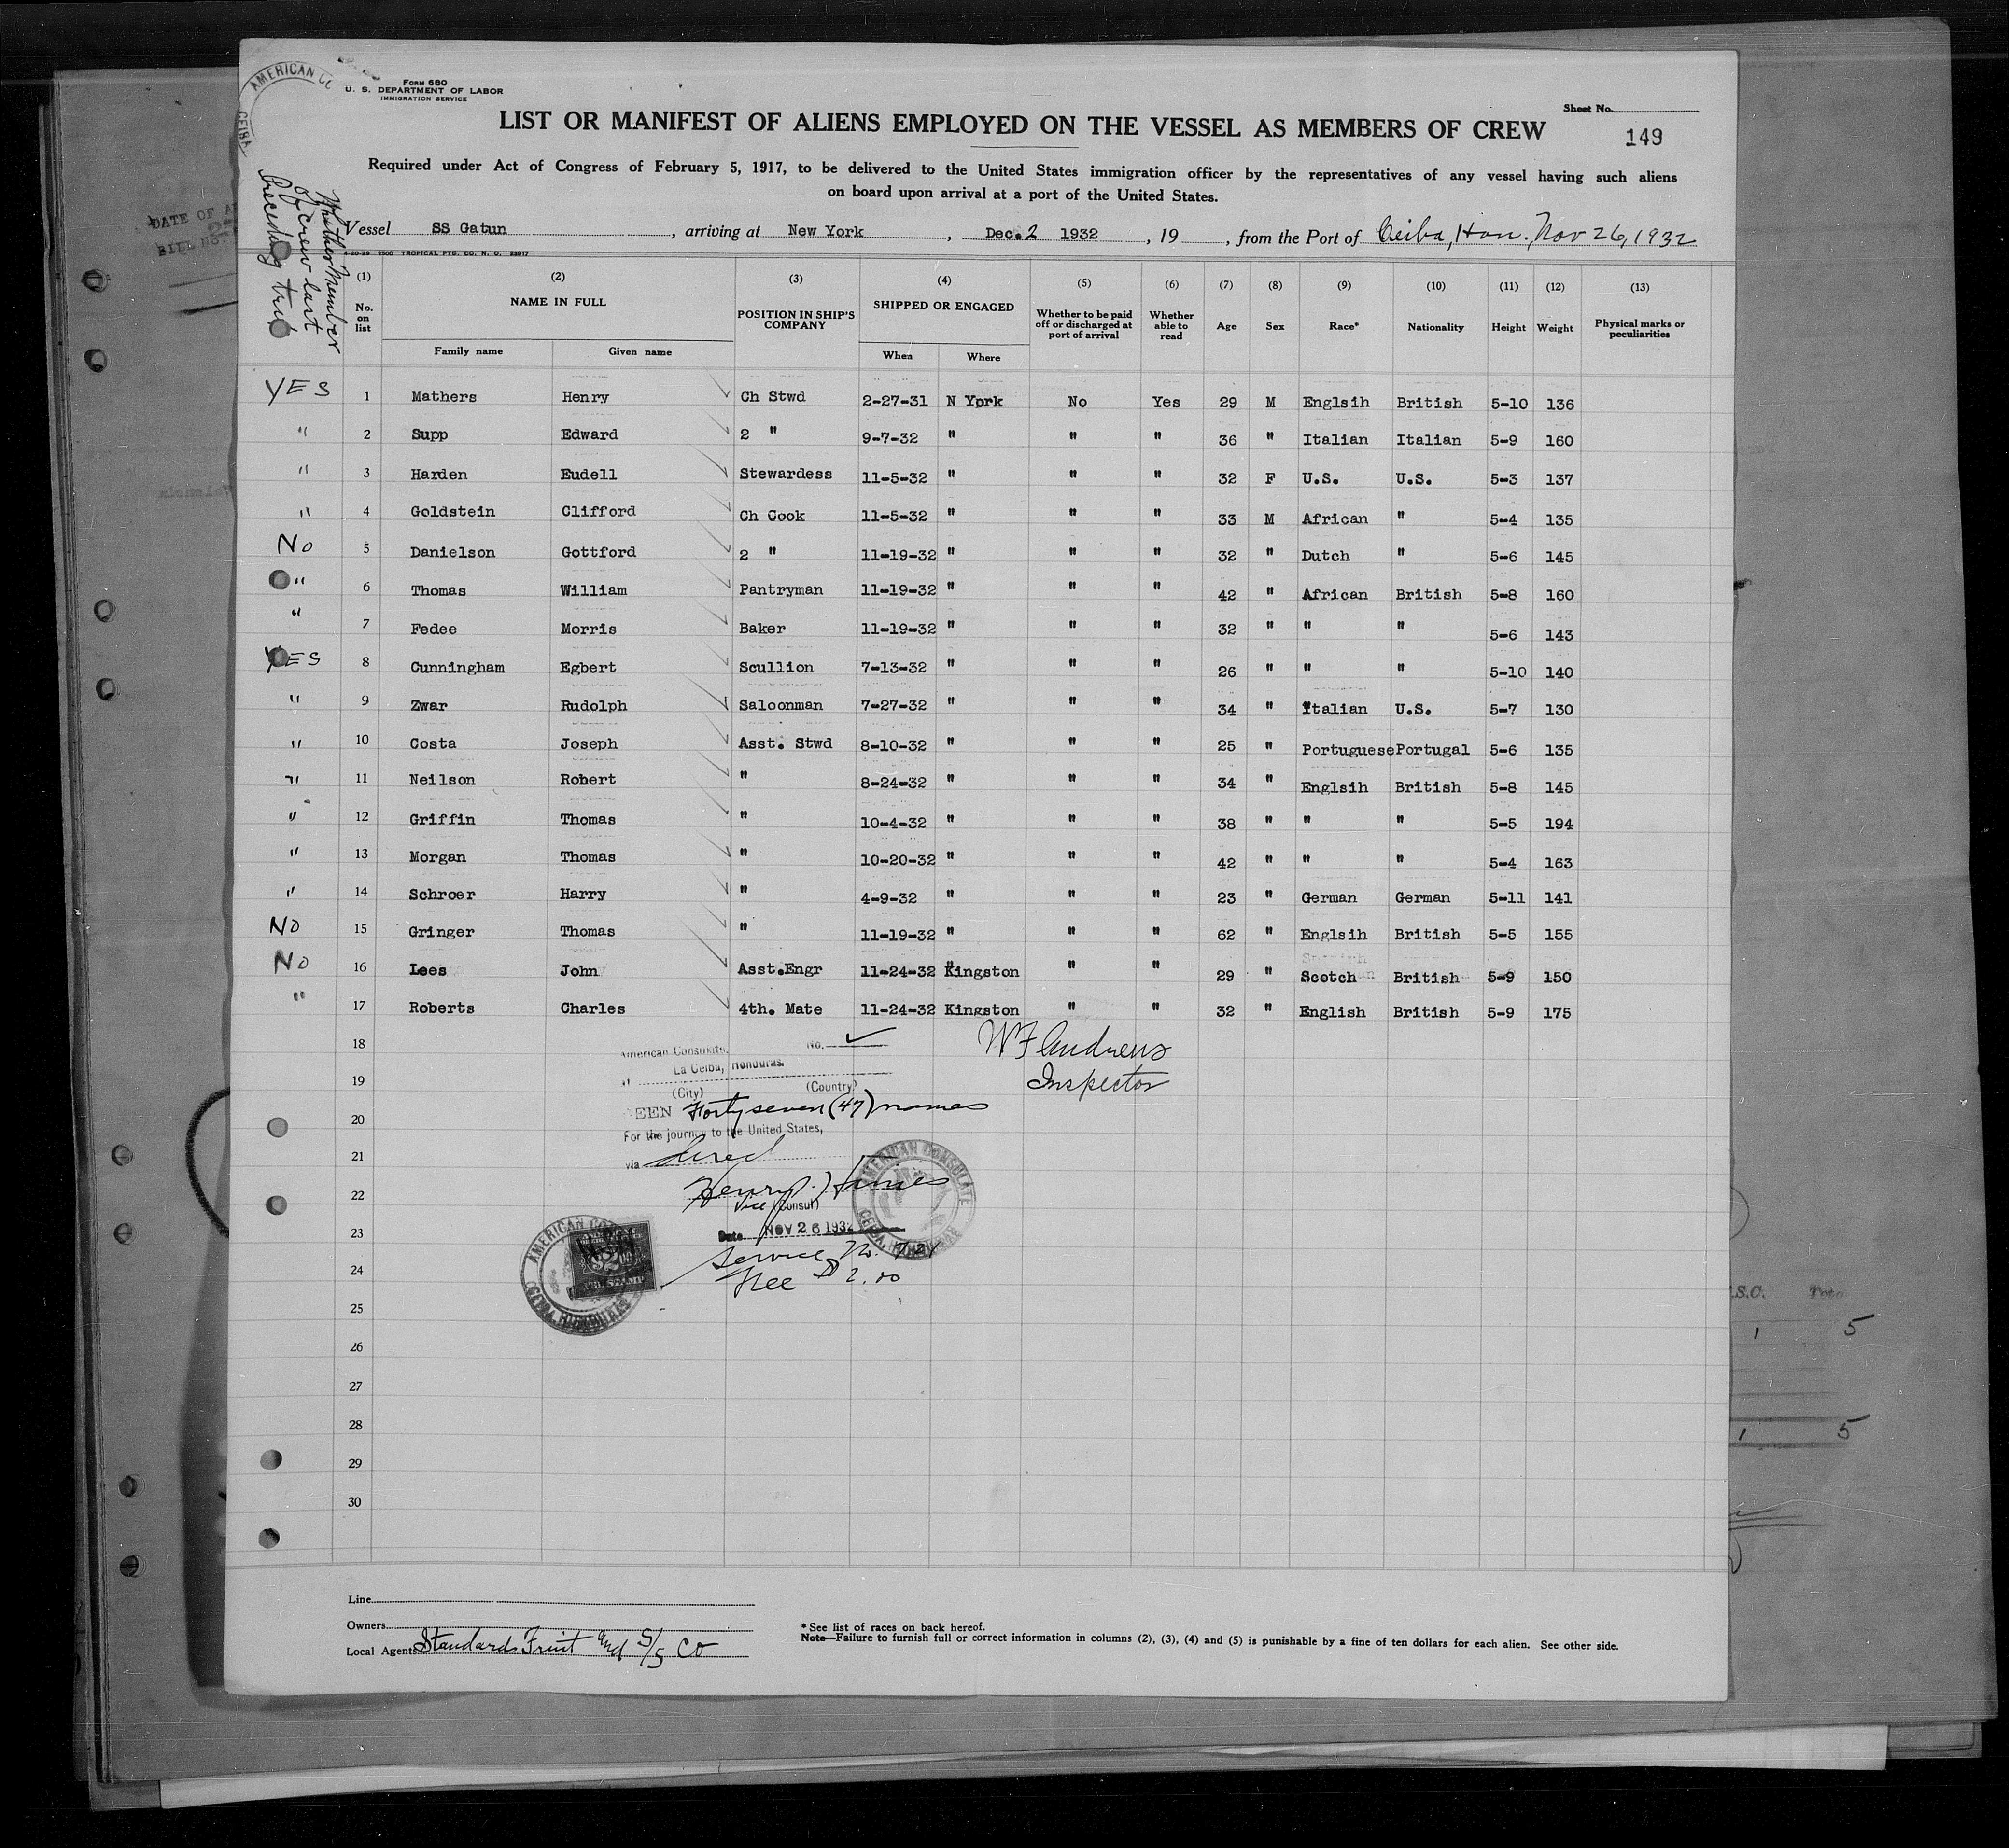 AMERICAN
CEIBA
Form 680
U. S. DEPARTMENT OF LABOR
IMMIGRATION SERVICE
Sheet No.
149
LIST OR MANIFEST OF ALIENS EMPLOYED ON THE VESSEL AS MEMBERS OF CREW
Required under Act of Congress of February 5, 1917, to be delivered to the United States immigration officer by the representatives of any vessel having such aliens
on board upon arrival at a port of the United States.
Vessel SS Gatun , arriving at New York , Dec. 2 1932 , 19 , from the Port of Ceiba, Hon., Nov 26, 1932
4-20-29 1500 TROPICAL PTG. CO. N. O. 28917
Whether Member
of crew last
Preceding trip
(1) (2) (3) (4) (5) (6) (7) (8) (9) (10) (11) (12) (13)
No. on list NAME IN FULL POSITION IN SHIP'S COMPANY SHIPPED OR ENGAGED Whether to be paid off or discharged at port of arrival Whether able to read Age Sex Race* Nationality Height Weight Physical marks or peculiarities
Family name Given name When Where
YES 1 Mathers Henry Ch Stwd 2-27-31 N York No Yes 29 M Englsih British 5-10 136
" 2 Supp Edward 2 " 9-7-32 " " " 36 " Italian Italian 5-9 160
" 3 Harden Eudell Stewardess 11-5-32 " " " 32 F U.S. U.S. 5-3 137
" 4 Goldstein Clifford Ch Cook 11-5-32 " " " 33 M African " 5-4 135
No 5 Danielson Gottford 2 " 11-19-32 " " " 32 " Dutch " 5-6 145
" 6 Thomas William Pantryman 11-19-32 " " " 42 " African British 5-8 160
" 7 Fedee Morris Baker 11-19-32 " " " 32 " " " 5-6 143
YES 8 Cunningham Egbert Scullion 7-13-32 " " " 26 " " " 5-10 140
" 9 Zwar Rudolph Saloonman 7-27-32 " " " 34 " Italian U.S. 5-7 130
" 10 Costa Joseph Asst. Stwd 8-10-32 " " " 25 " Portuguese Portugal 5-6 135
" 11 Neilson Robert " 8-24-32 " " " 34 " Englsih British 5-8 145
" 12 Griffin Thomas " 10-4-32 " " " 38 " " " 5-5 194
" 13 Morgan Thomas " 10-20-32 " " " 42 " " " 5-4 163
" 14 Schroer Harry " 4-9-32 " " " 23 " German German 5-11 141
No 15 Gringer Thomas " 11-19-32 " " " 62 " Englsih British 5-5 155
No 16 Lees John Asst.Engr 11-24-32 Kingston " " 29 " Scotch British 5-9 150
" 17 Roberts Charles 4th. Mate 11-24-32 Kingston " " 32 " English British 5-9 175
18
19
20
21
22
23
24
25
26
27
28
29
30
W F Andrews
Inspector
American Consulate No.
La Ceiba, Honduras.
at
(City) (Country)
SEEN Forty seven (47) names
For the journey to the United States,
via direct
Vice Consul
Date NOV 26 1932
Service No.
Fee $ 2.00
AMERICAN CONSULATE
CEIBA, HONDURAS
AMERICAN CONSULATE
CEIBA, HONDURAS
Line
Owners
Local Agents Standard Fruit and S/S Co
* See list of races on back hereof.
Note—Failure to furnish full or correct information in columns (2), (3), (4) and (5) is punishable by a fine of ten dollars for each alien. See other side.
DATE OF
BILL NO.
.S.C.
1 5
1 5